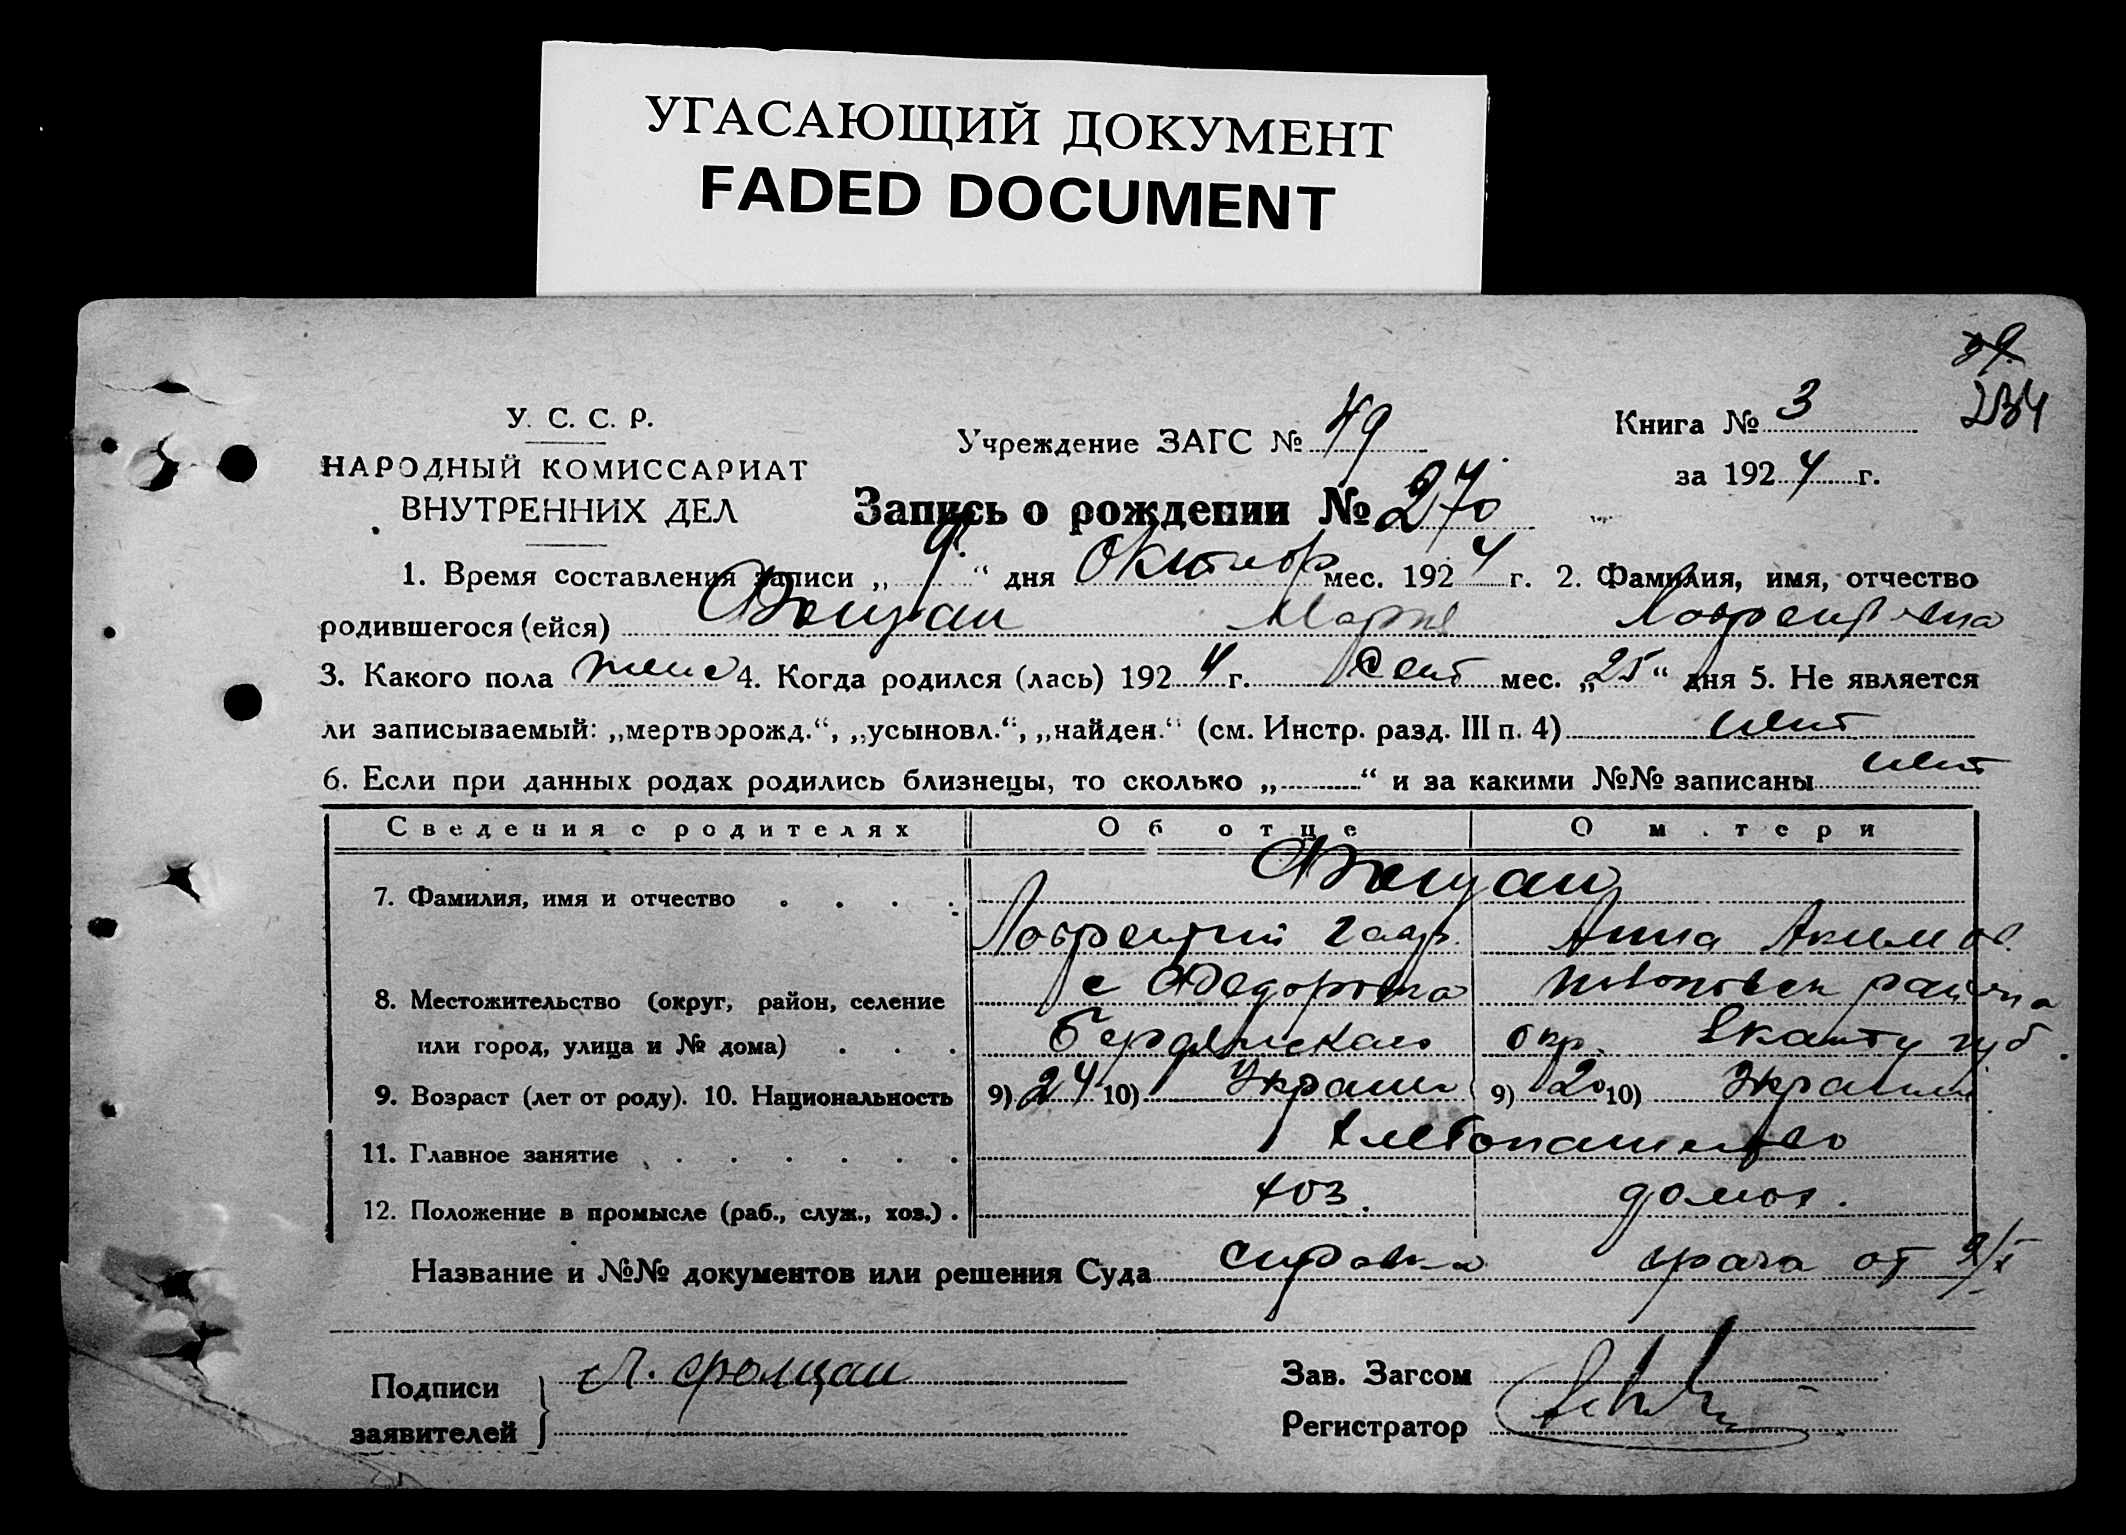 УГАСАЮЩИЙ ДОКУМЕНТ
FADED DOCUMENT
39.
234
У. С. С. Р.
НАРОДНЫЙ КОМИССАРИАТ
ВНУТРЕННИХ ДЕЛ
Учреждение ЗАГС № 49
Книга № 3
за 1924 г.
Запись о рождении № 270
1. Время составления записи „ 9 “ дня Октябр мес. 1924 г. 2. Фамилия, имя, отчество
родившегося (ейся) Мария Лаврентьевна
3. Какого пола женс 4. Когда родился (лась) 1924 г. Сент мес. „25“ дня 5. Не является
ли записываемый: „мертворожд.“, „усыновл.“, „найден.“ (см. Инстр. разд. III п. 4) нет
6. Если при данных родах родились близнецы, то сколько „ “ и за какими №№ записаны нет
Сведения о родителях Об отце О матери
7. Фамилия, имя и отчество
Лаврентий Гавр. Анна Акимов.
8. Местожительство (округ, район, селение с Федоровка района
или город, улица и № дома) Бердянского окр. Екат губ.
9. Возраст (лет от роду). 10. Национальность 9) 24 10) Украин 9) 20 10) Украин
11. Главное занятие хлебопашество
12. Положение в промысле (раб., служ., хоз.) хоз. домох.
Название и №№ документов или решения Суда справка врача от 9/X
Подписи
заявителей
Л.
Зав. Загсом
Регистратор